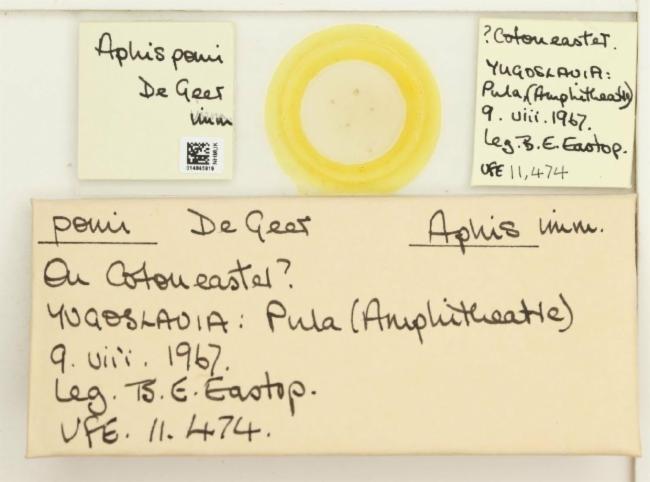 Aphis pomi
De Geer
imm
NHMUK
014845819
?Cotoneaster.
YUGOSLAVIA:
Pula, (Amphitheatre)
9. viii. 1967.
Leg. B. E. Eastop.
VFE 11,474
pomi De Geer Aphis imm.
On Cotoneaster?
YUGOSLAVIA: Pula (Amphitheatre)
9. viii. 1967.
Leg. B. E. Eastop.
VFE. 11. 474.